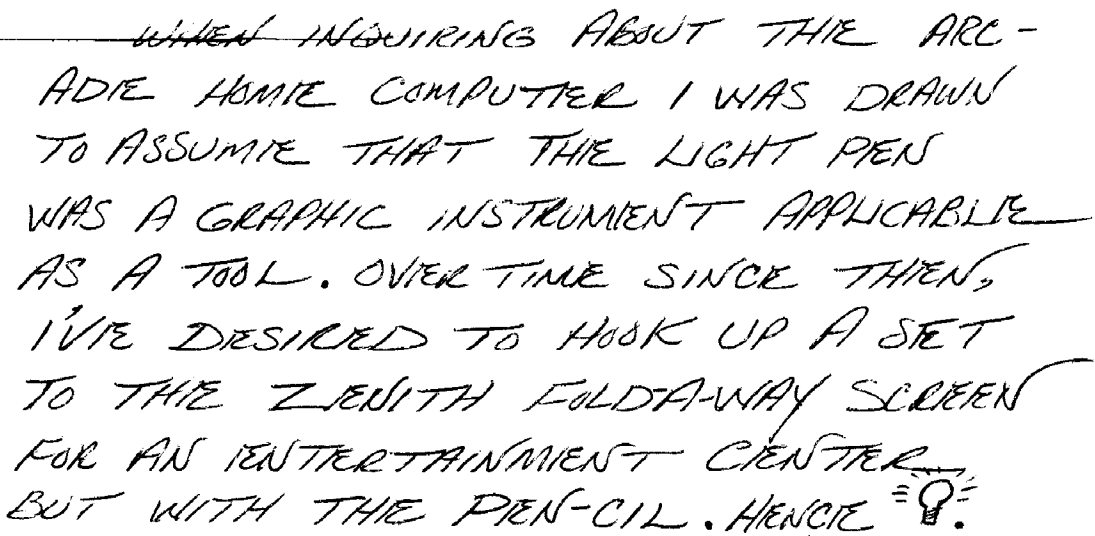 WHEN INQUIRING ABOUT THE ARC-
ADE HOME COMPUTER I WAS DRAWN
TO ASSUME THAT THE LIGHT PEN
WAS A GRAPHIC INSTRUMENT APPLICABLE
AS A TOOL. OVER TIME SINCE THEN,
I'VE DESIRED TO HOOK UP A SET
TO THE ZENITH FOLD-A-WAY SCREEN
FOR AN ENTERTAINMENT CENTER
BUT WITH THE PEN-CIL. HENCE .